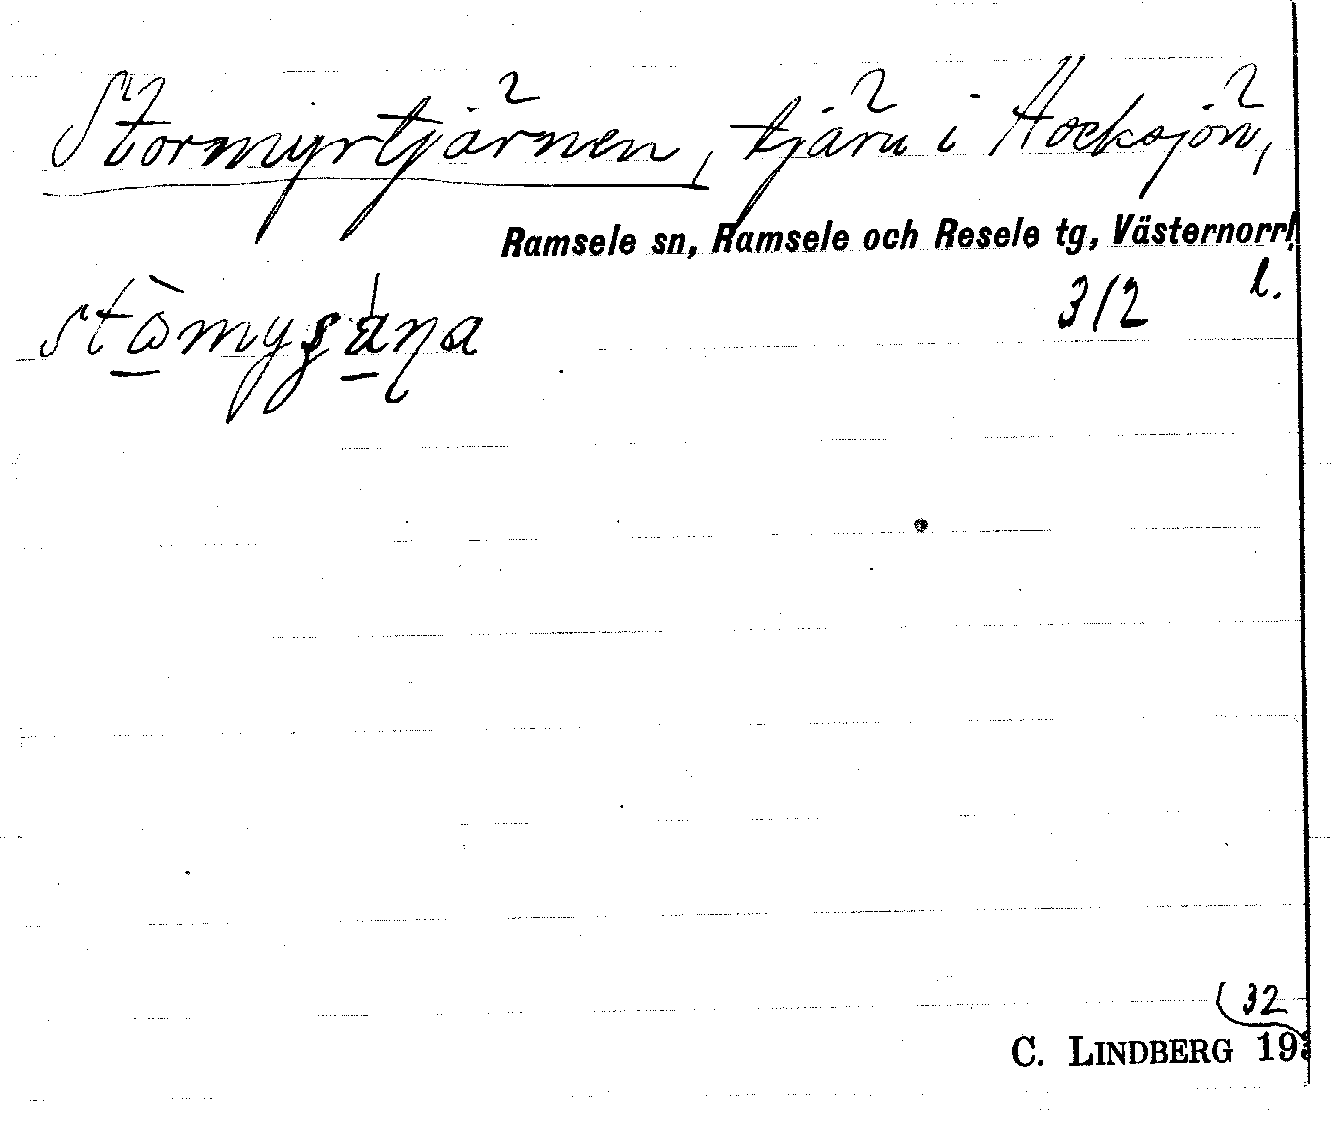 Stormyrtjärnen, tjärn i Hocksjön,
Ramsele sn, Ramsele och Resele tg, Västernorrl
312 l.
32
C. LINDBERG 193